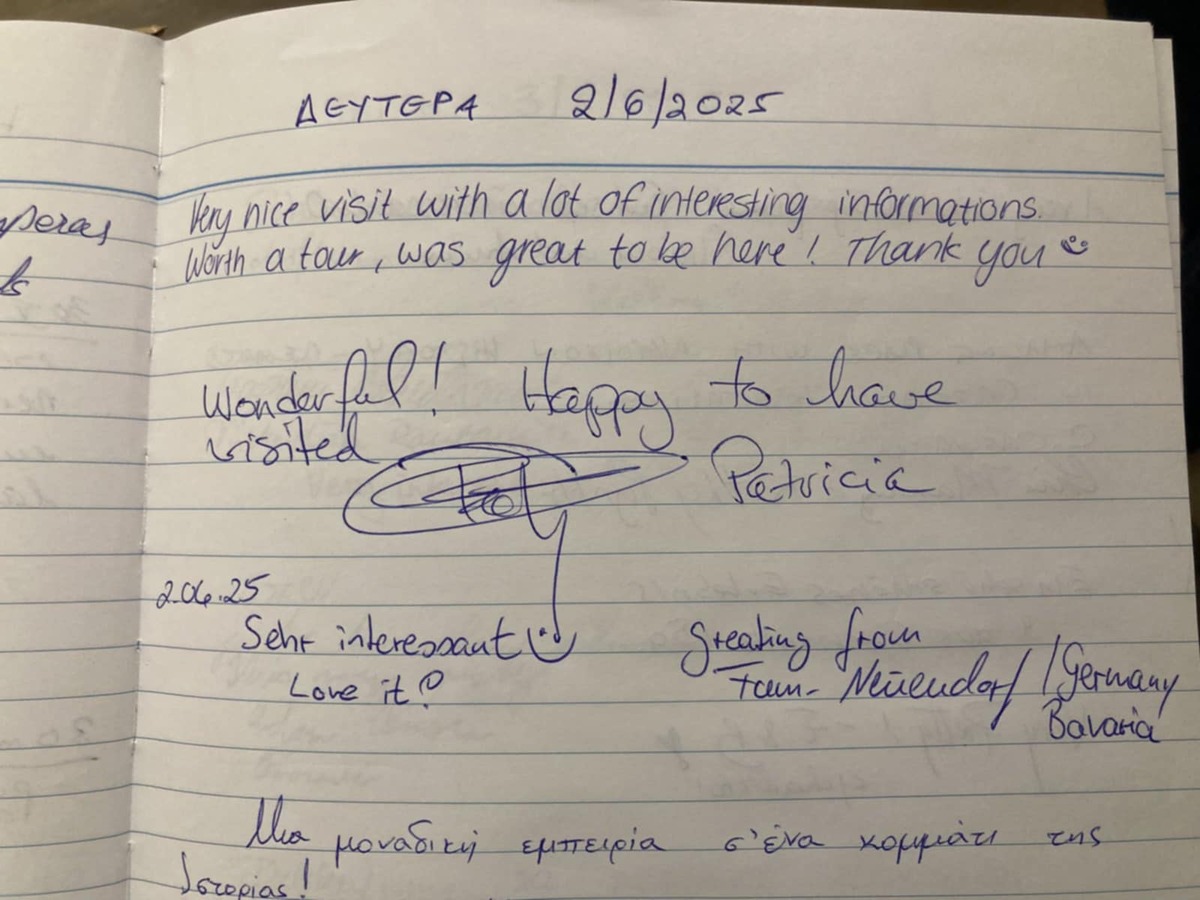 ΔΕΥΤΕΡΑ 2/6/2025
Very nice visit with a lot of interesting informations.
Worth a tour, was great to be here! Thank you
Wonderful! Happy to have
visited
Patricia
2.06.25
Sehr interessant
Love it?
Greating from
Fam. Neuendorf / Germany
Bavaria
Μια μοναδική εμπειρία σ'ένα κομμάτι της
Ιστορίας!